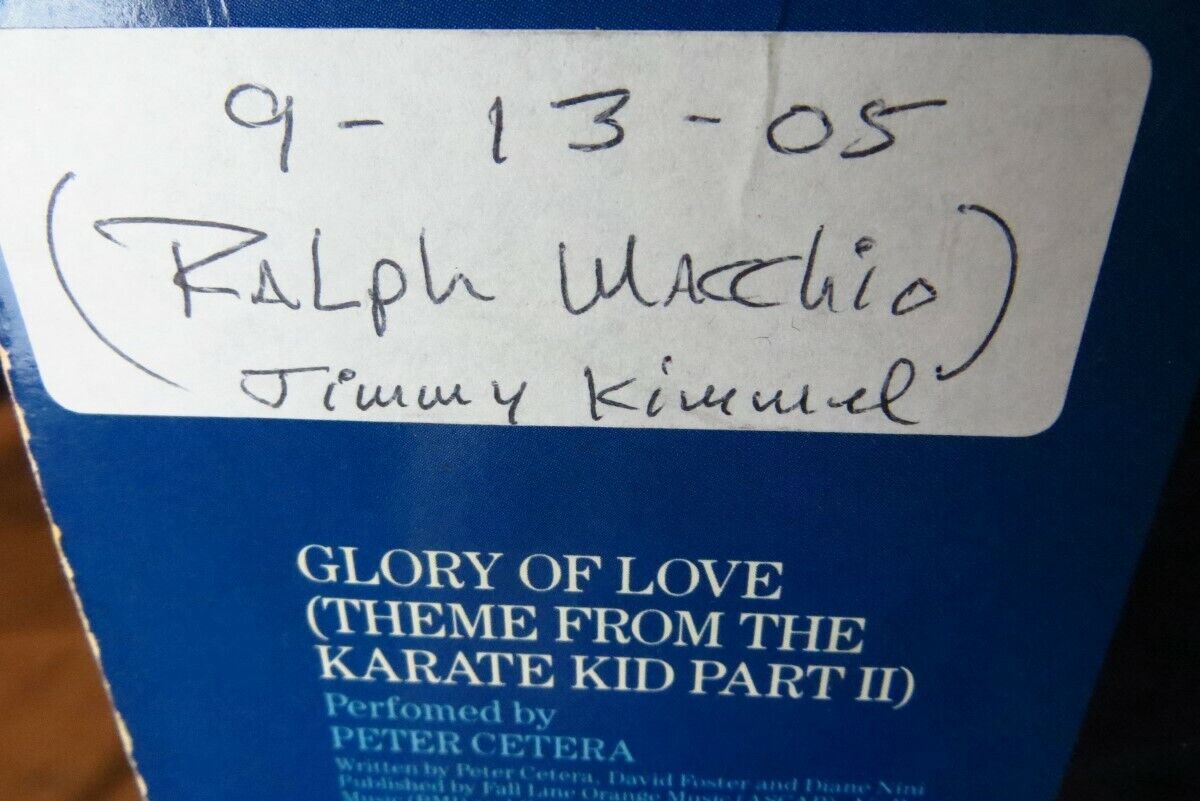 9-13-05
(Ralph Macchio)
Jimmy Kimmel
GLORY OF LOVE
(THEME FROM THE
KARATE KID PART II)
Perfomed by
PETER CETERA
Written by Peter Cetera, David Foster and Diane Nini
Published by Fall Line Orange Music (ASCAP)
Music (BMI)